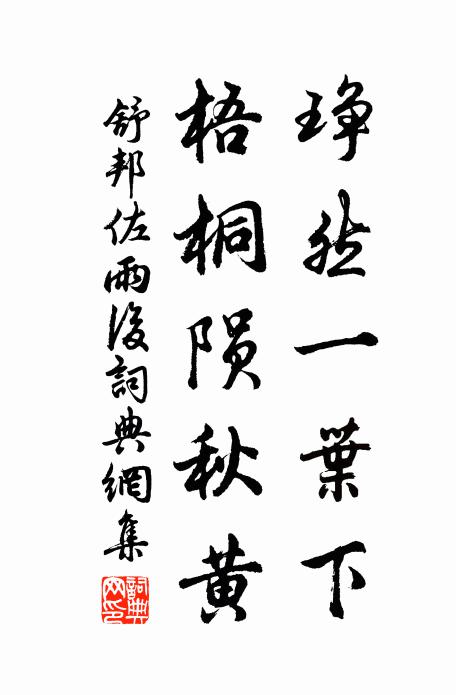 琤然一葉下
梧桐隕秋黄
舒邦佐雨後詞典網集
詞典網印